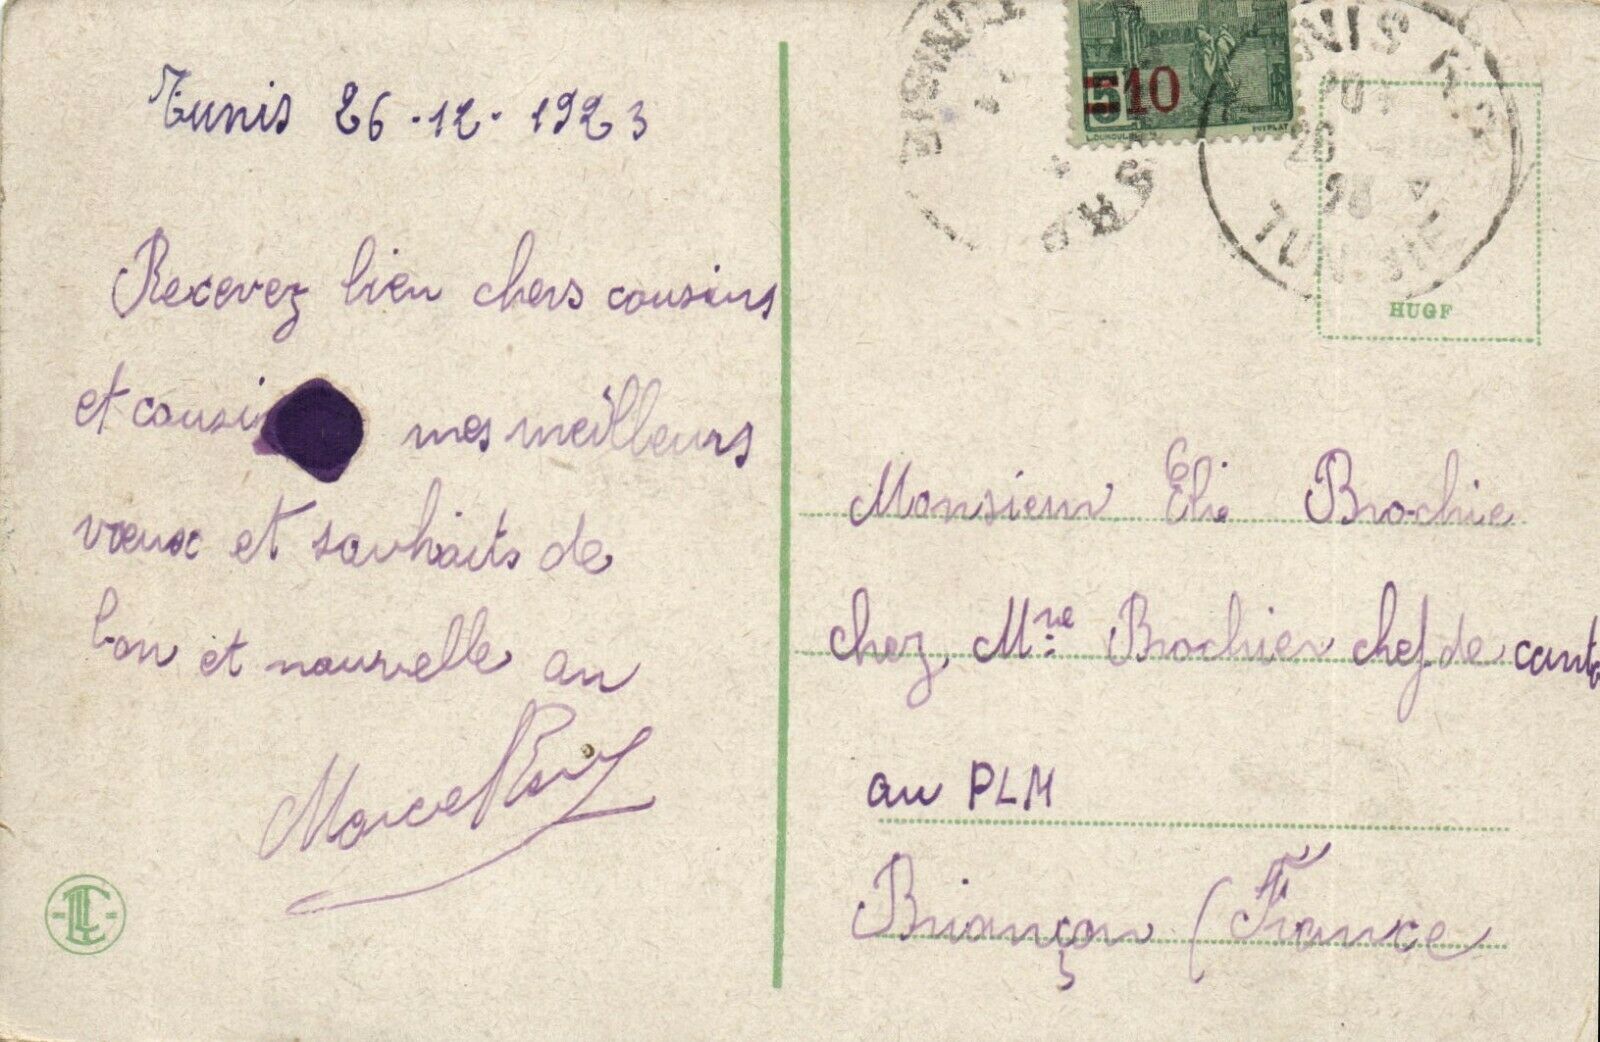 Tunis 26-12-1923
Recevez bien chers cousins
et cousi mes meilleurs
vœux et souhaits de
bon et nouvelle an
Marcel
5 10
TUNIS R.P
26
TUNISIE
HUGF
Monsieur Elie Brochie
chez Mme Brochier chef de cant
au PLM
Briançon (France